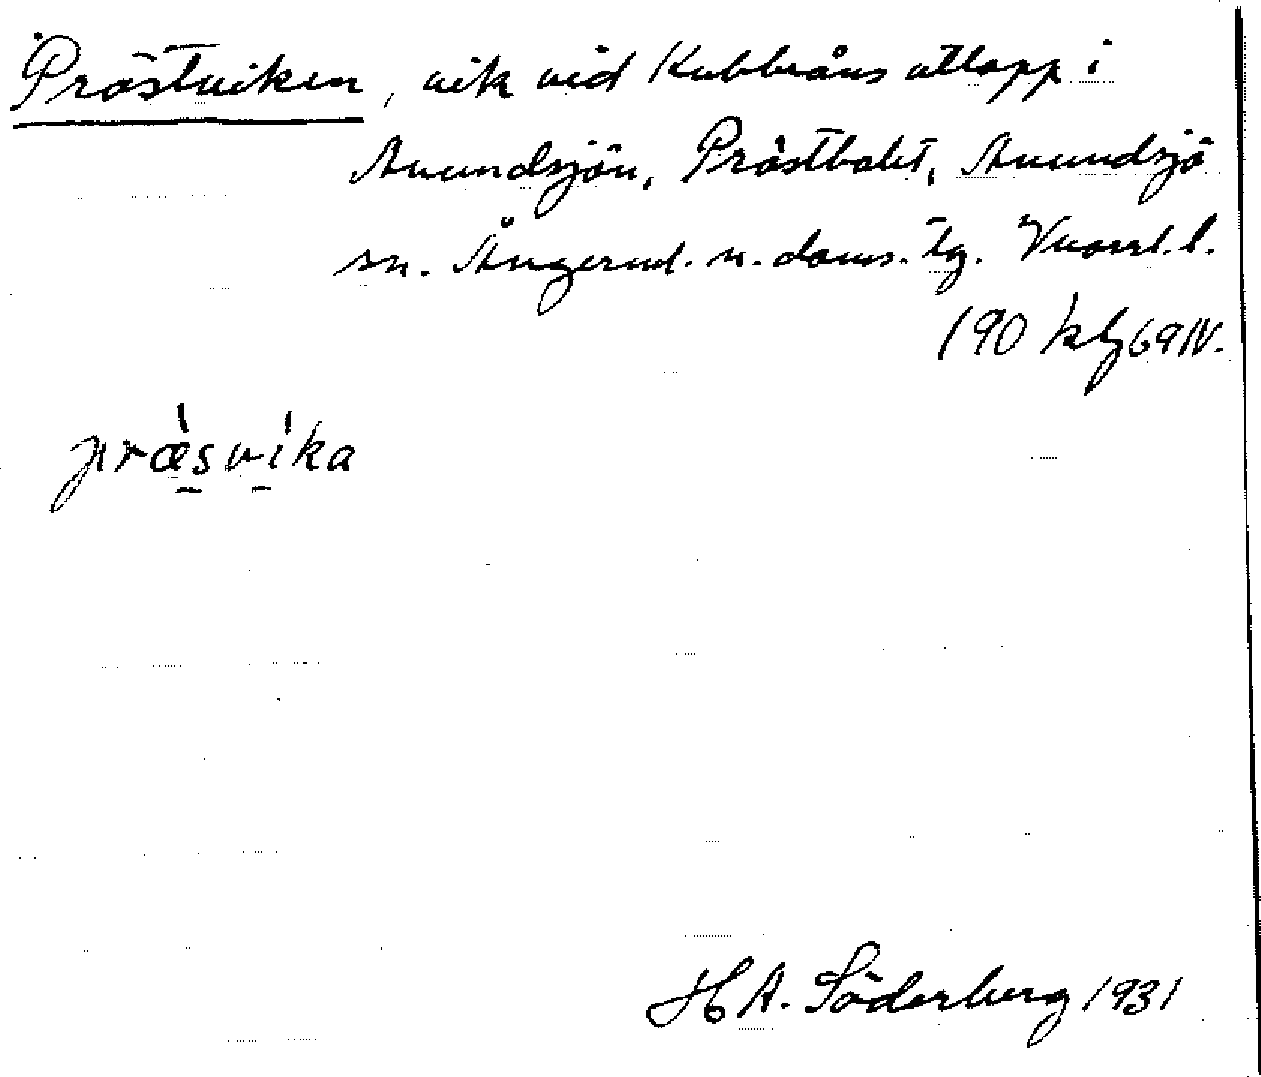 Prästviken, vik vid Kubbeåns utlopp i
Anundsjön, Prästbolet, Anundsjö
sn. Ångerml. n. doms. tg.
190 kbl 69 IV.
præsvika
H A. Söderberg 1931